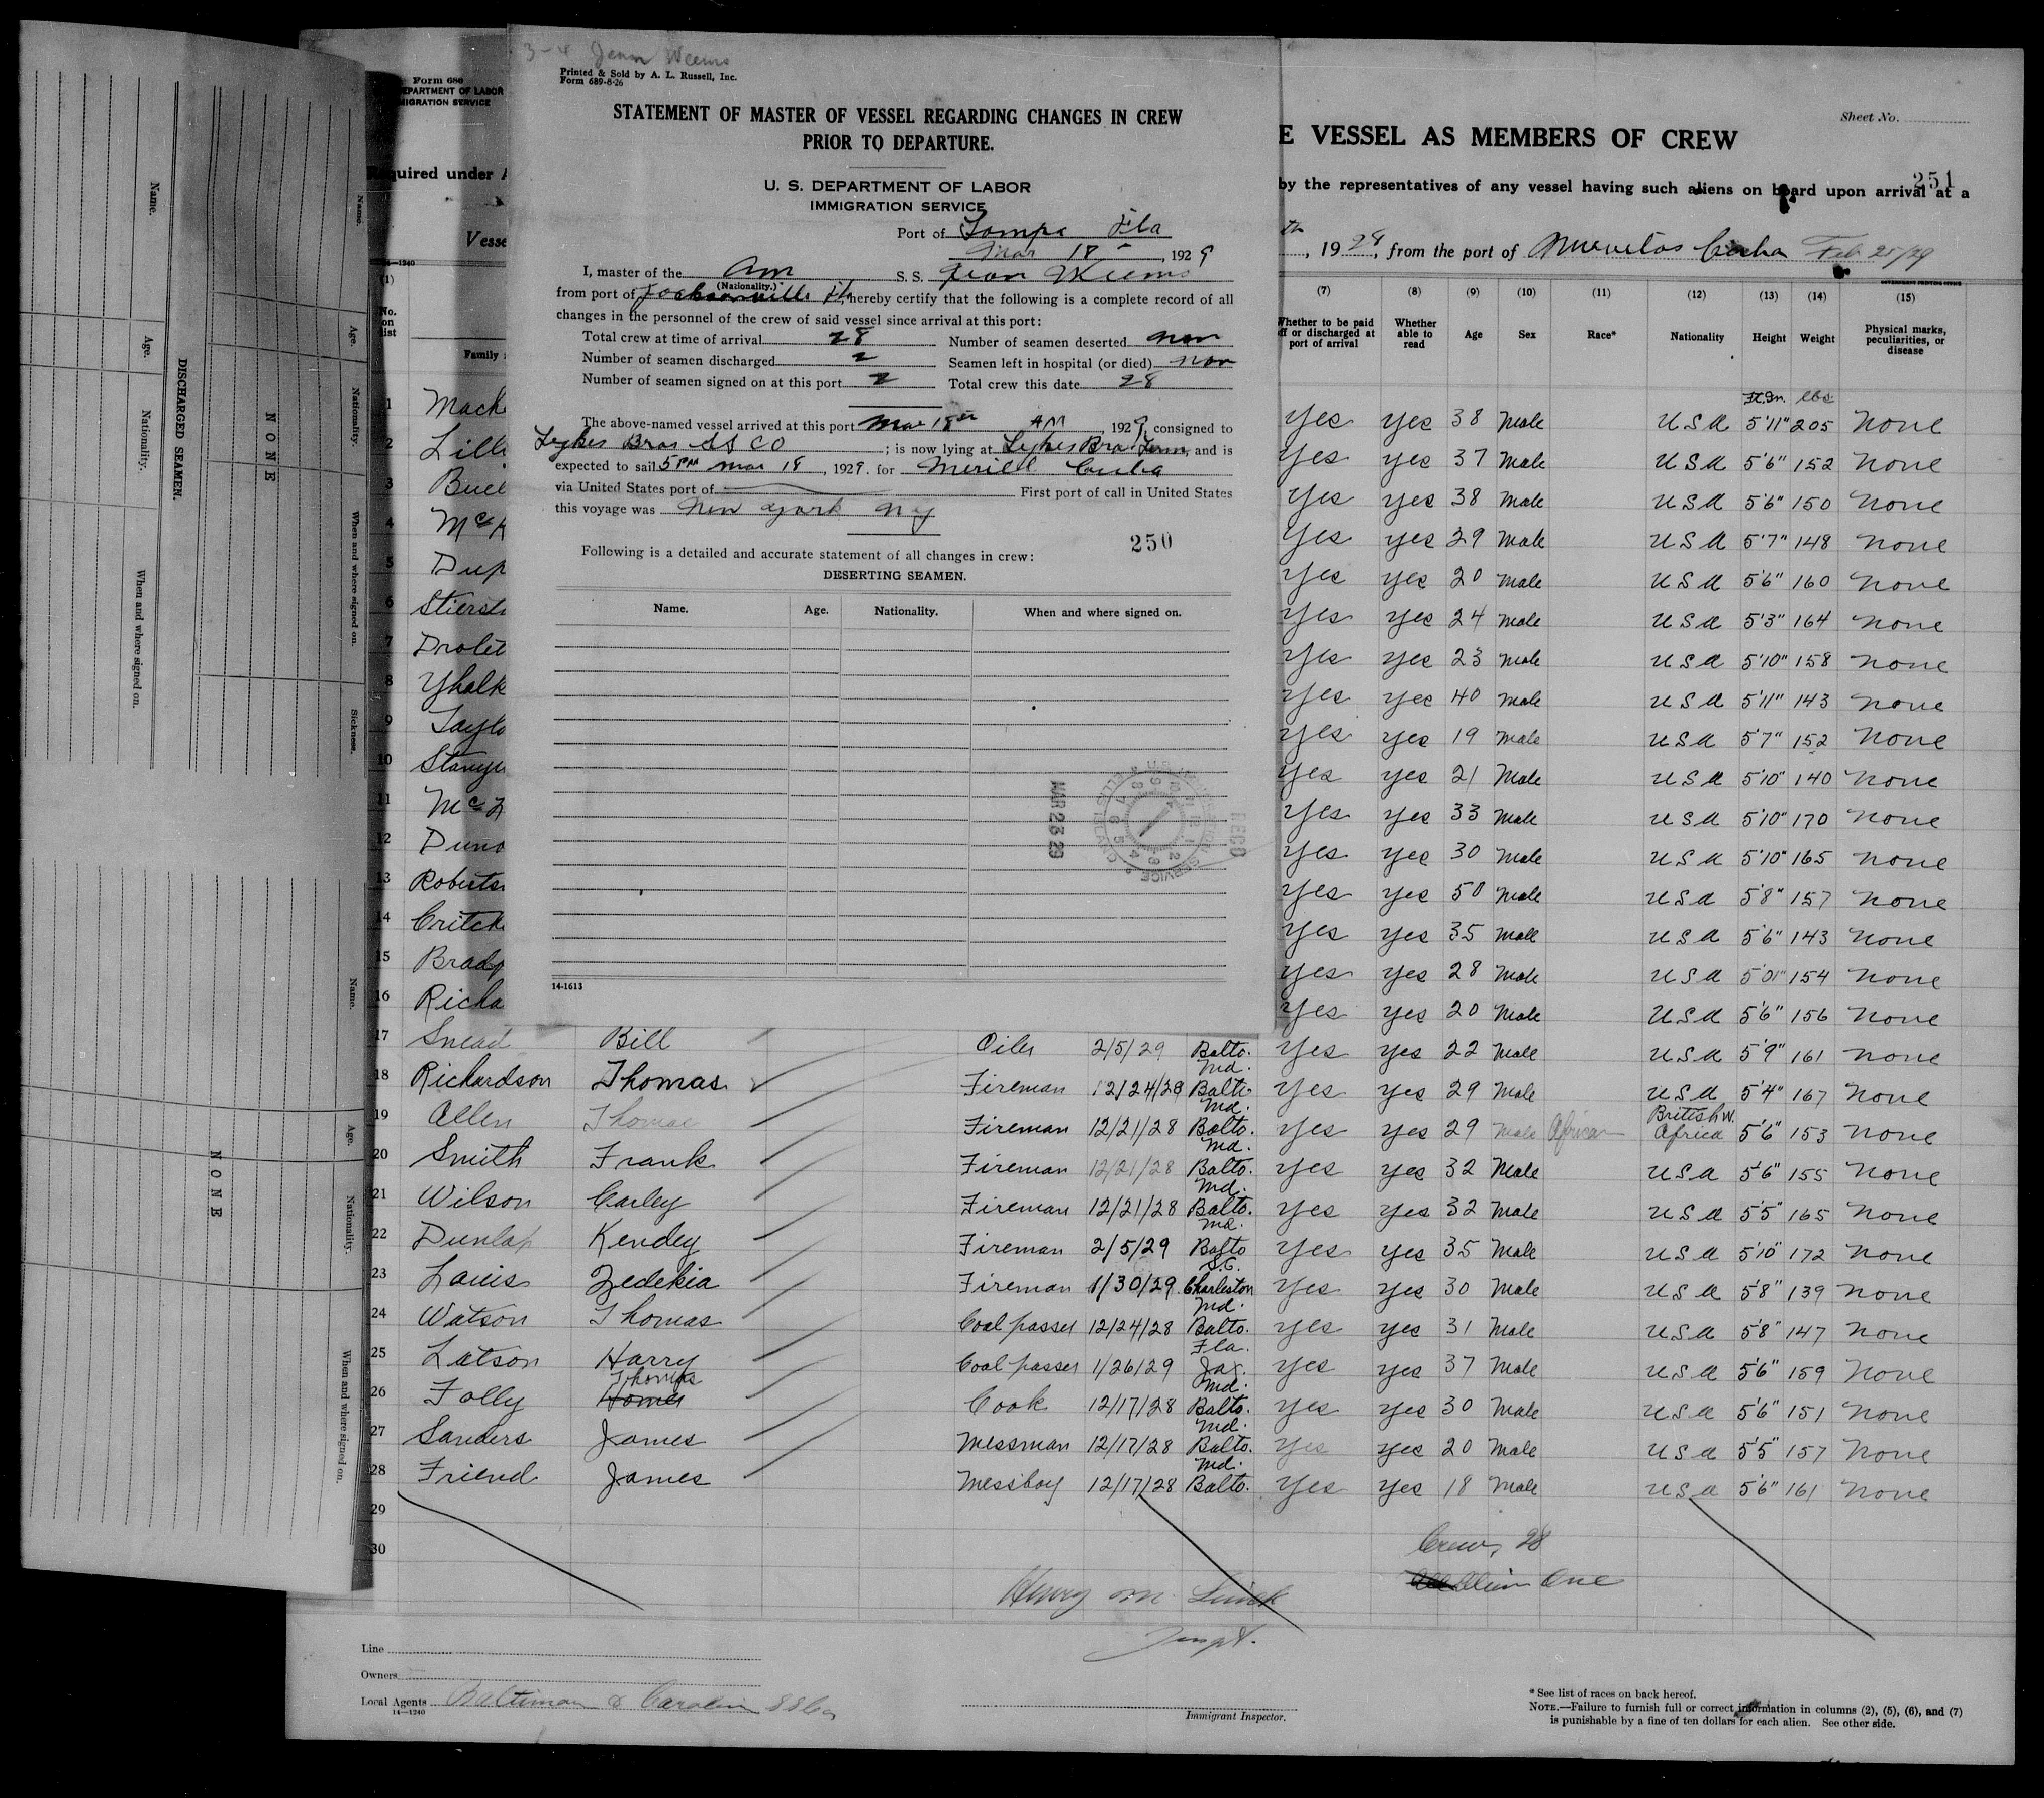 3-4 Jean Weems
Printed & Sold by A. L. Russell, Inc.
Form 689-8-26
STATEMENT OF MASTER OF VESSEL REGARDING CHANGES IN CREW
PRIOR TO DEPARTURE.
U. S. DEPARTMENT OF LABOR
IMMIGRATION SERVICE
Port of Tampa Fla
Mar 18, 1929
I, master of the Am S. S. Jean Weems
(Nationality.)
from port of Jacksonville Fla, hereby certify that the following is a complete record of all
changes in the personnel of the crew of said vessel since arrival at this port:
Total crew at time of arrival 28 Number of seamen deserted non
Number of seamen discharged 2 Seamen left in hospital (or died) non
Number of seamen signed on at this port 2 Total crew this date 28
The above-named vessel arrived at this port Mar 18th AM, 1929, consigned to
Lykes Bros SS CO; is now lying at Lykes Bros Term, and is
expected to sail 5 PM Mar 18, 1929. for Cuba
via United States port of First port of call in United States
this voyage was New York NY
250
Following is a detailed and accurate statement of all changes in crew:
DESERTING SEAMEN.
Name. Age. Nationality. When and where signed on.
MAR 23 29
RECD
14-1613
Form 686
DEPARTMENT OF LABOR
IMMIGRATION SERVICE
Required under A
Vesse
14-1240
(1)
No. on list
Family
Sheet No.
E VESSEL AS MEMBERS OF CREW
251
by the representatives of any vessel having such aliens on board upon arrival at a
th, 1929, from the port of Cuba Feb 25/29
(7) (8) (9) (10) (11) (12) (13) (14) (15)
Whether to be paid off or discharged at port of arrival Whether able to read Age Sex Race* Nationality Height Weight Physical marks, peculiarities, or disease
Ft. In. lbs
1 Mack yes yes 38 Male USA 5'11" 205 None
2 Lill yes yes 37 Male USA 5'6" 152 None
3 Buel yes yes 38 Male USA 5'6" 150 None
4 McK yes yes 29 Male USA 5'7" 148 None
5 Dup yes yes 20 Male USA 5'6" 160 None
6 Stierst yes yes 24 Male USA 5'3" 164 None
7 Drolet yes yes 23 Male USA 5'10" 158 None
8 Yhalk yes yes 40 Male USA 5'11" 143 None
9 Taylo yes yes 19 Male USA 5'7" 152 None
10 Stanye yes yes 21 Male USA 5'10" 140 None
11 Mc yes yes 33 Male USA 5'10" 170 None
12 Duno yes yes 30 Male USA 5'10" 165 None
13 Roberts yes yes 50 Male USA 5'8" 157 None
14 Critch yes yes 35 Male USA 5'6" 143 None
15 Brady yes yes 28 Male USA 5'01" 154 None
16 Richa yes yes 20 Male USA 5'6" 156 None
17 Snead Bill Oiler 2/5/29 Balto. Md. yes yes 22 Male USA 5'9" 161 None
18 Richardson Thomas Fireman 12/24/28 Balto Md. yes yes 29 Male USA 5'4" 167 None
19 Allen Thomas Fireman 12/21/28 Balto. Md. yes yes 29 Male African British W. Africa 5'6" 153 None
20 Smith Frank Fireman 12/21/28 Balto. Md. yes yes 32 Male USA 5'6" 155 None
21 Wilson Carley Fireman 12/21/28 Balto. Md. yes yes 32 Male USA 5'5" 165 None
22 Dunlap Kendey Fireman 2/5/29 Balto yes yes 35 Male USA 5'10" 172 None
23 Lauis Zedekia Fireman 1/30/29 S.C. Charleston yes yes 30 Male USA 5'8" 139 None
24 Watson Thomas Coal passer 12/24/28 Md. Balto. yes yes 31 Male USA 5'8" 147 None
25 Latson Harry Coal passer 1/26/29 Fla. Jax. yes yes 37 Male USA 5'6" 159 None
26 Folly Homer Thomas Cook 12/17/28 Md. Balto. yes yes 30 Male USA 5'6" 151 None
27 Sanders James Messman 12/17/28 Md. Balto. yes yes 20 Male USA 5'5" 157 None
28 Friend James Messboy 12/17/28 Md. Balto. yes yes 18 Male USA 5'6" 161 None
29
30
Crew, 28
Alien One
Henry M
Inspt.
Line
Owners
Local Agents Baltimore & Carolina SS Co
14-1240
Immigrant Inspector.
* See list of races on back hereof.
NOTE.—Failure to furnish full or correct information in columns (2), (5), (6), and (7)
is punishable by a fine of ten dollars for each alien. See other side.
DISCHARGED SEAMEN.
Name. Age. Nationality. When and where signed on.
NONE
Name. Age. Nationality. When and where signed on. Sickness.
NONE
Name. Age. Nationality. When and where signed on.